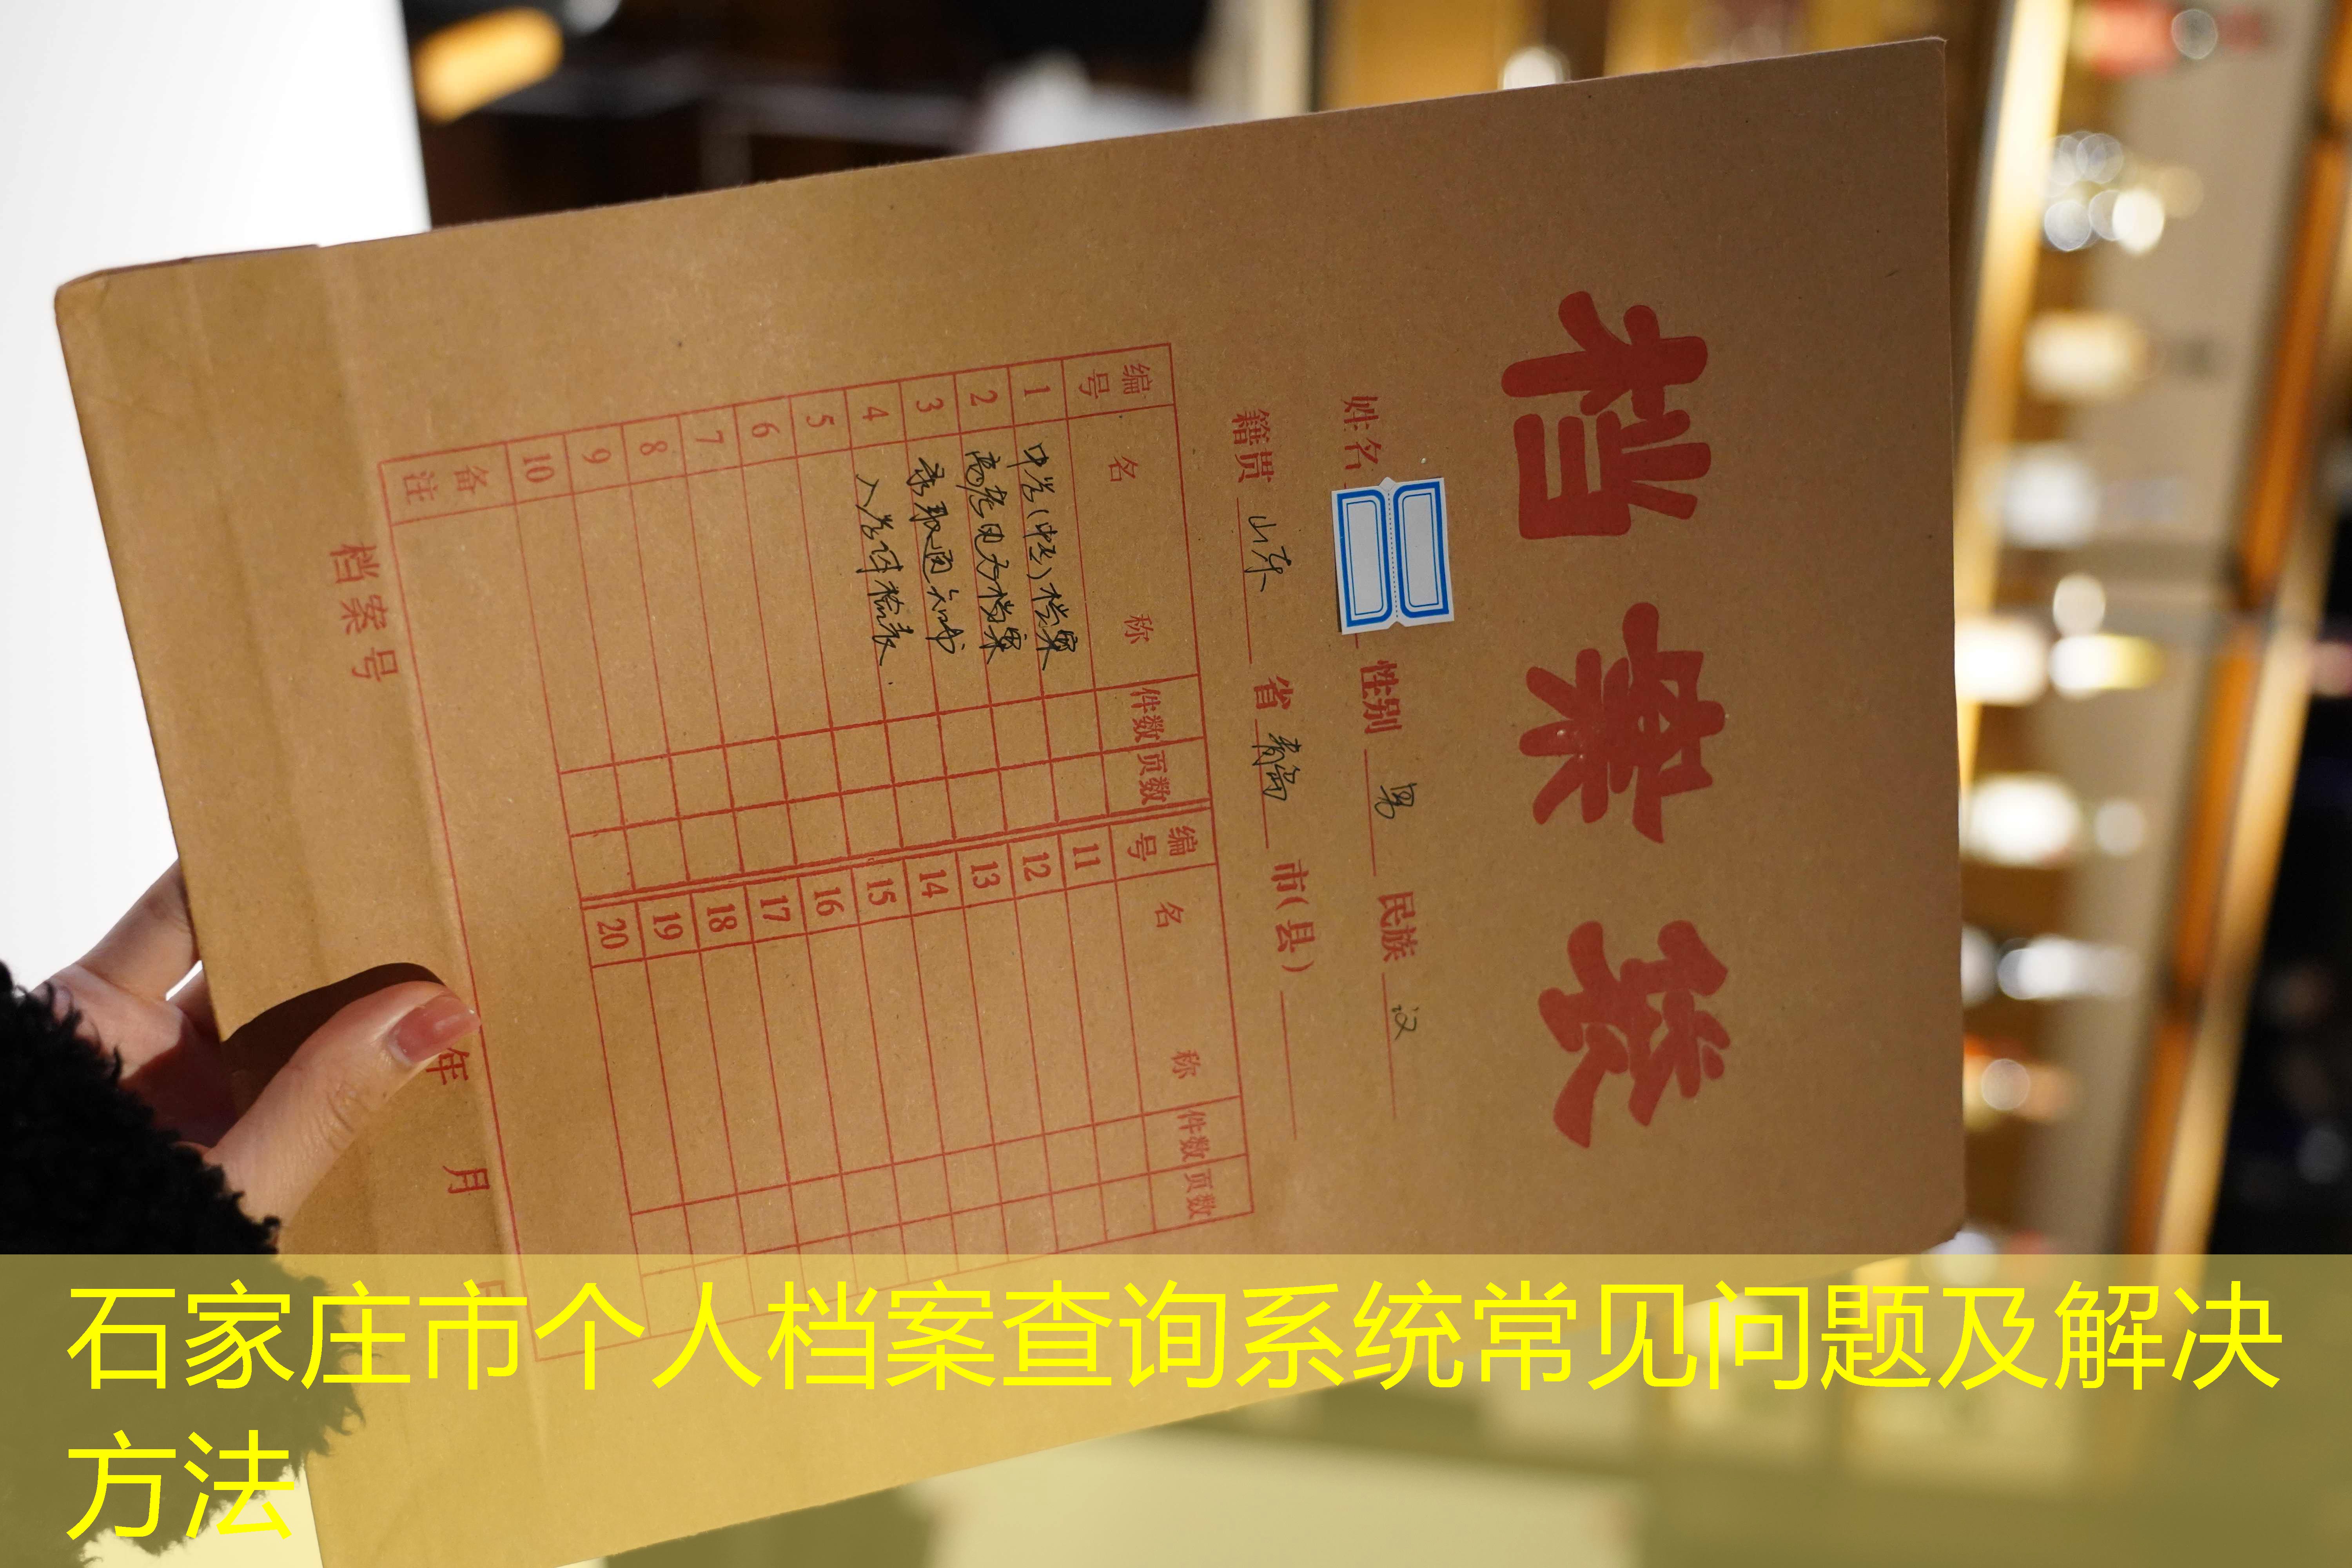 档案袋
姓名 性别 男 民族 汉
籍贯 山东 省 青岛 市(县)
编号 名称 件数 页数 编号 名称 件数 页数
1 中学(中专)档案 11
2 高考电子档案 12
3 录取通知书 13
4 入学体检表 14
5 15
6 16
7 17
8 18
9 19
10 20
备注
档案号 年 月 日
石家庄市个人档案查询系统常见问题及解决
方法